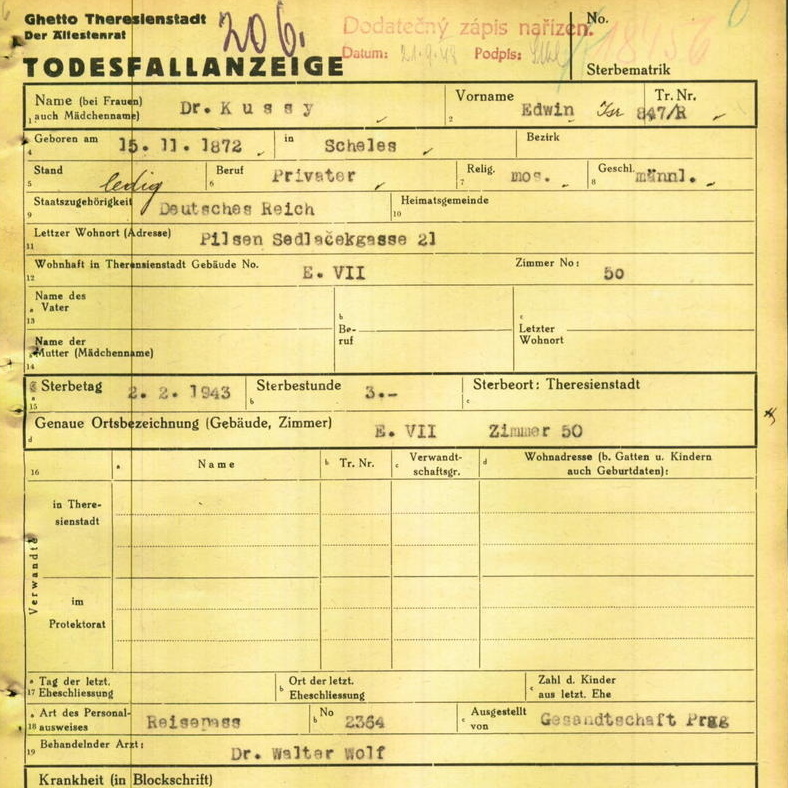 Ghetto Theresienstadt
Der Ältestenrat
TODESFALLANZEIGE
206.
Dodatečný zápis nařízen.
Datum: 21.9.48 Podpis:
No. 18456
Sterbematrik
1 Name (bei Frauen) auch Mädchenname) Dr. Kussy
2 Vorname Edwin Isr
Tr. Nr. 847/R
4 Geboren am 15. 11. 1872 in Scheles Bezirk
5 Stand ledig 6 Beruf Privater 7 Relig. mos. 8 Geschl. männl.
9 Staatszugehörigkeit Deutsches Reich 10 Heimatsgemeinde
11 Lettzer Wohnort (Adresse) Pilsen Sedlačekgasse 21
12 Wohnhaft in Therensienstadt Gebäude No. E. VII Zimmer No: 50
13 a Name des Vater
14 a Name der Mutter (Mädchenname)
b Be-ruf
c Letzter Wohnort
15 a Sterbetag 2. 2. 1943 b Sterbestunde 3.-- c Sterbeort: Theresienstadt
d Genaue Ortsbezeichnung (Gebäude, Zimmer) E. VII Zimmer 50
16 a Name b Tr. Nr. c Verwandt-schaftsgr. d Wohnadresse (b. Gatten u. Kindern auch Geburtdaten):
Verwandte
in There-sienstadt
im Protektorat
17 a Tag der letzt. Eheschliessung b Ort der letzt. Eheschliessung c Zahl d. Kinder aus letzt. Ehe
18 a Art des Personal-ausweises Reisepass b No 2364 c Ausgestellt von Gesandtschaft Prag
19 Behandelnder Arzt: Dr. Walter Wolf
Krankheit (in Blockschrift)